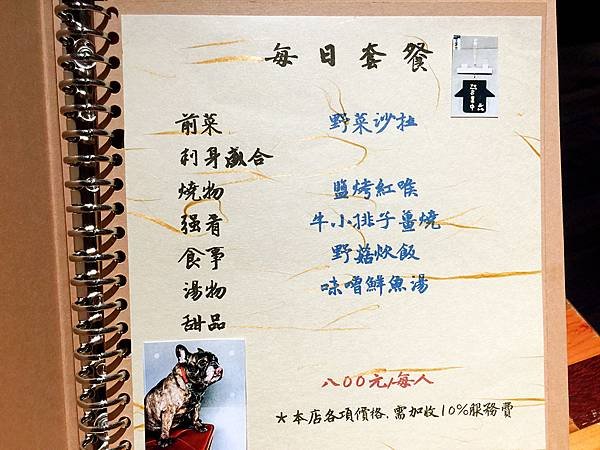 每日套餐
前菜 野菜沙拉
刺身盛合
燒物 鹽烤紅喉
强肴 牛小排子薑燒
食事 野菇炊飯
湯物 味噌鮮魚湯
甜品
八00元/每人
*本店各項價格、需加收10%服務費